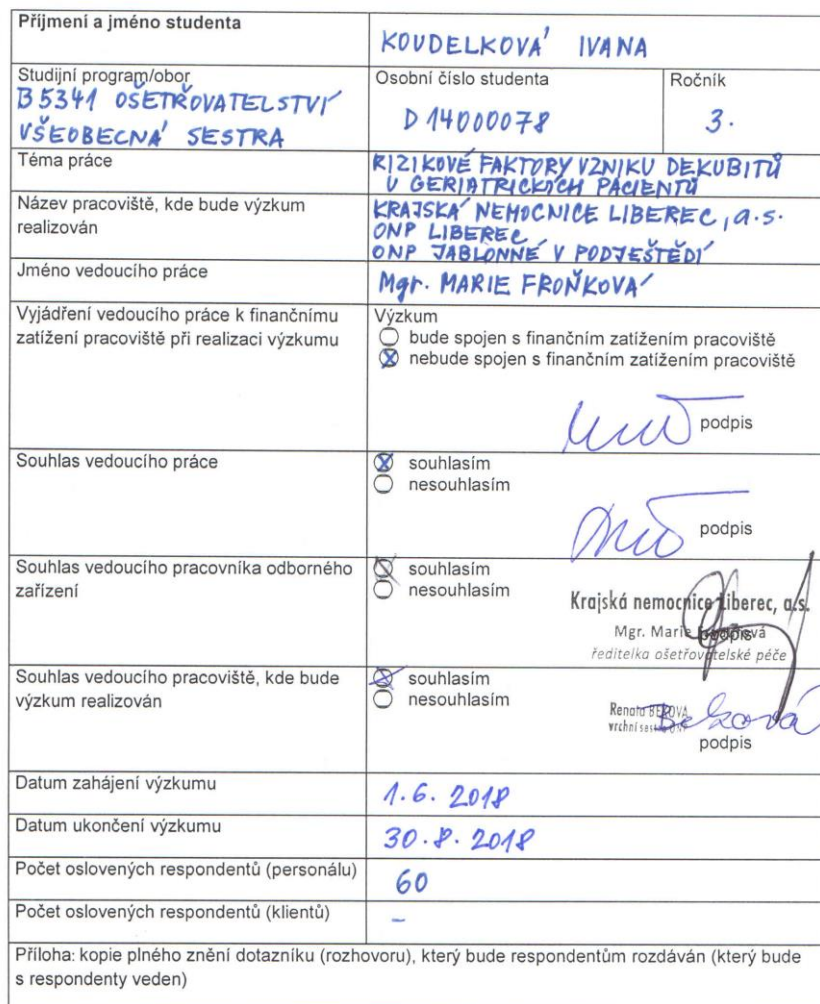 Příjmení a jméno studenta
KOUDELKOVÁ IVANA
Studijní program/obor
B5341 OŠETŘOVATELSTVÍ
VŠEOBECNÁ SESTRA
Osobní číslo studenta
D14000078
Ročník
3.
Téma práce
RIZIKOVÉ FAKTORY VZNIKU DEKUBITŮ
U GERIATRICKÝCH PACIENTŮ
Název pracoviště, kde bude výzkum
realizován
KRAJSKÁ NEMOCNICE LIBEREC, a.s.
ONP LIBEREC
ONP JABLONNÉ V PODJEŠTĚDÍ
Jméno vedoucího práce
Mgr. MARIE FROŇKOVÁ
Vyjádření vedoucího práce k finančnímu
zatížení pracoviště při realizaci výzkumu
Výzkum
bude spojen s finančním zatížením pracoviště
nebude spojen s finančním zatížením pracoviště
podpis
Souhlas vedoucího práce
souhlasím
nesouhlasím
podpis
Souhlas vedoucího pracovníka odborného
zařízení
souhlasím
nesouhlasím
Krajská nemocnice Liberec, a.s.
Mgr. Marie
podpis
ředitelka ošetřovatelské péče
Souhlas vedoucího pracoviště, kde bude
výzkum realizován
souhlasím
nesouhlasím
Renata BEKOVÁ
vrchní sestra ONP
Beková
podpis
Datum zahájení výzkumu
1.6. 2018
Datum ukončení výzkumu
30.8.2018
Počet oslovených respondentů (personálu)
60
Počet oslovených respondentů (klientů)
-
Příloha: kopie plného znění dotazníku (rozhovoru), který bude respondentům rozdáván (který bude
s respondenty veden)